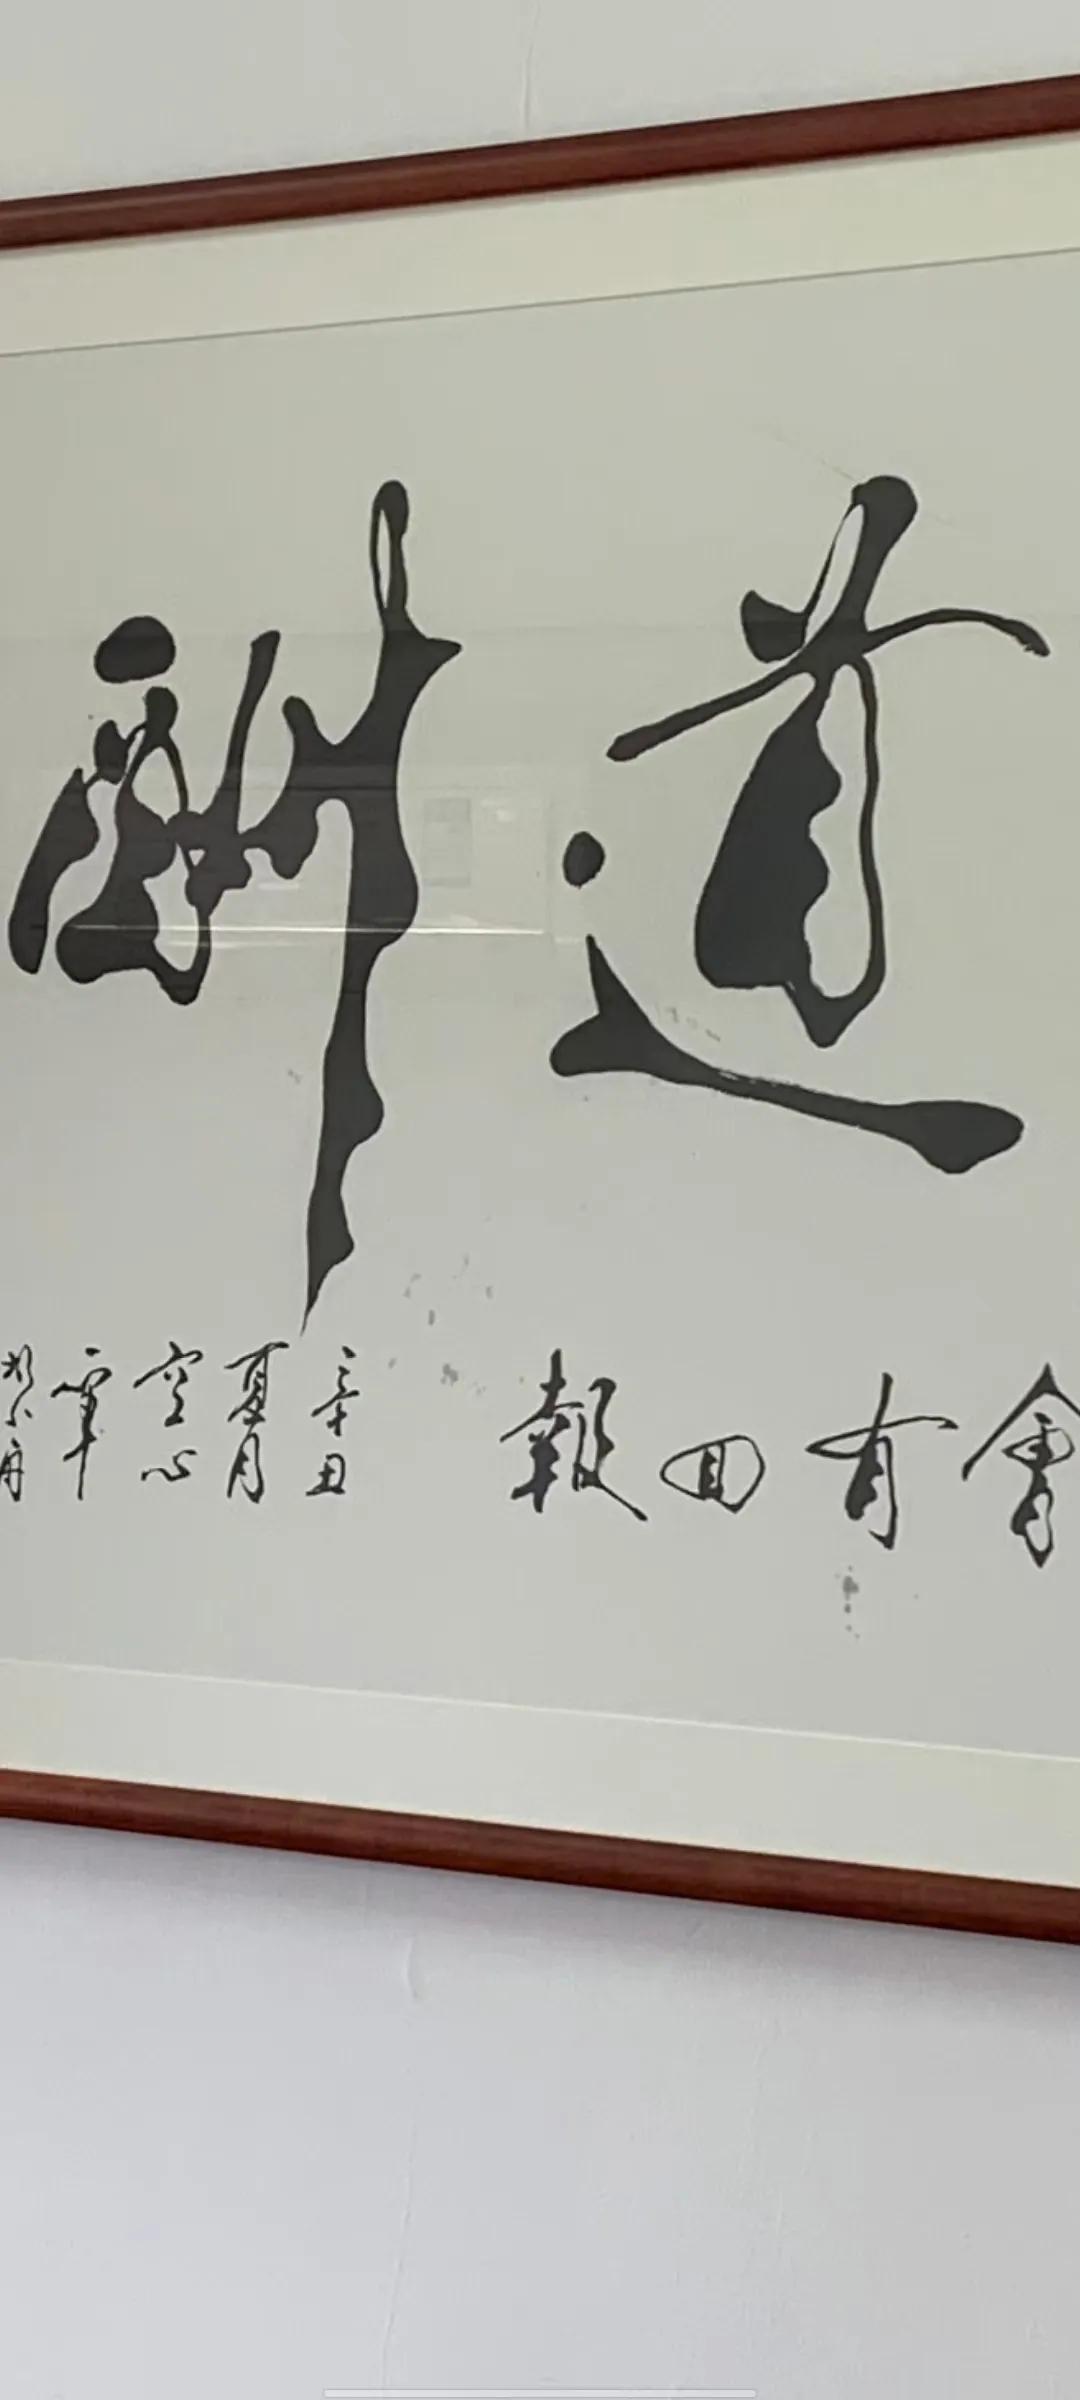 道酬
會有回報
辛丑
夏月
空心